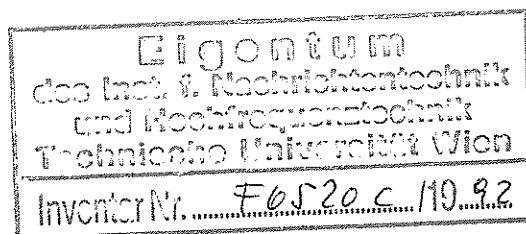 Eigentum
des Inst. f. Nachrichtentechnik
und Hochfrequenztechnik
Technische Universität Wien
Inventar Nr. F6520 C /19 92